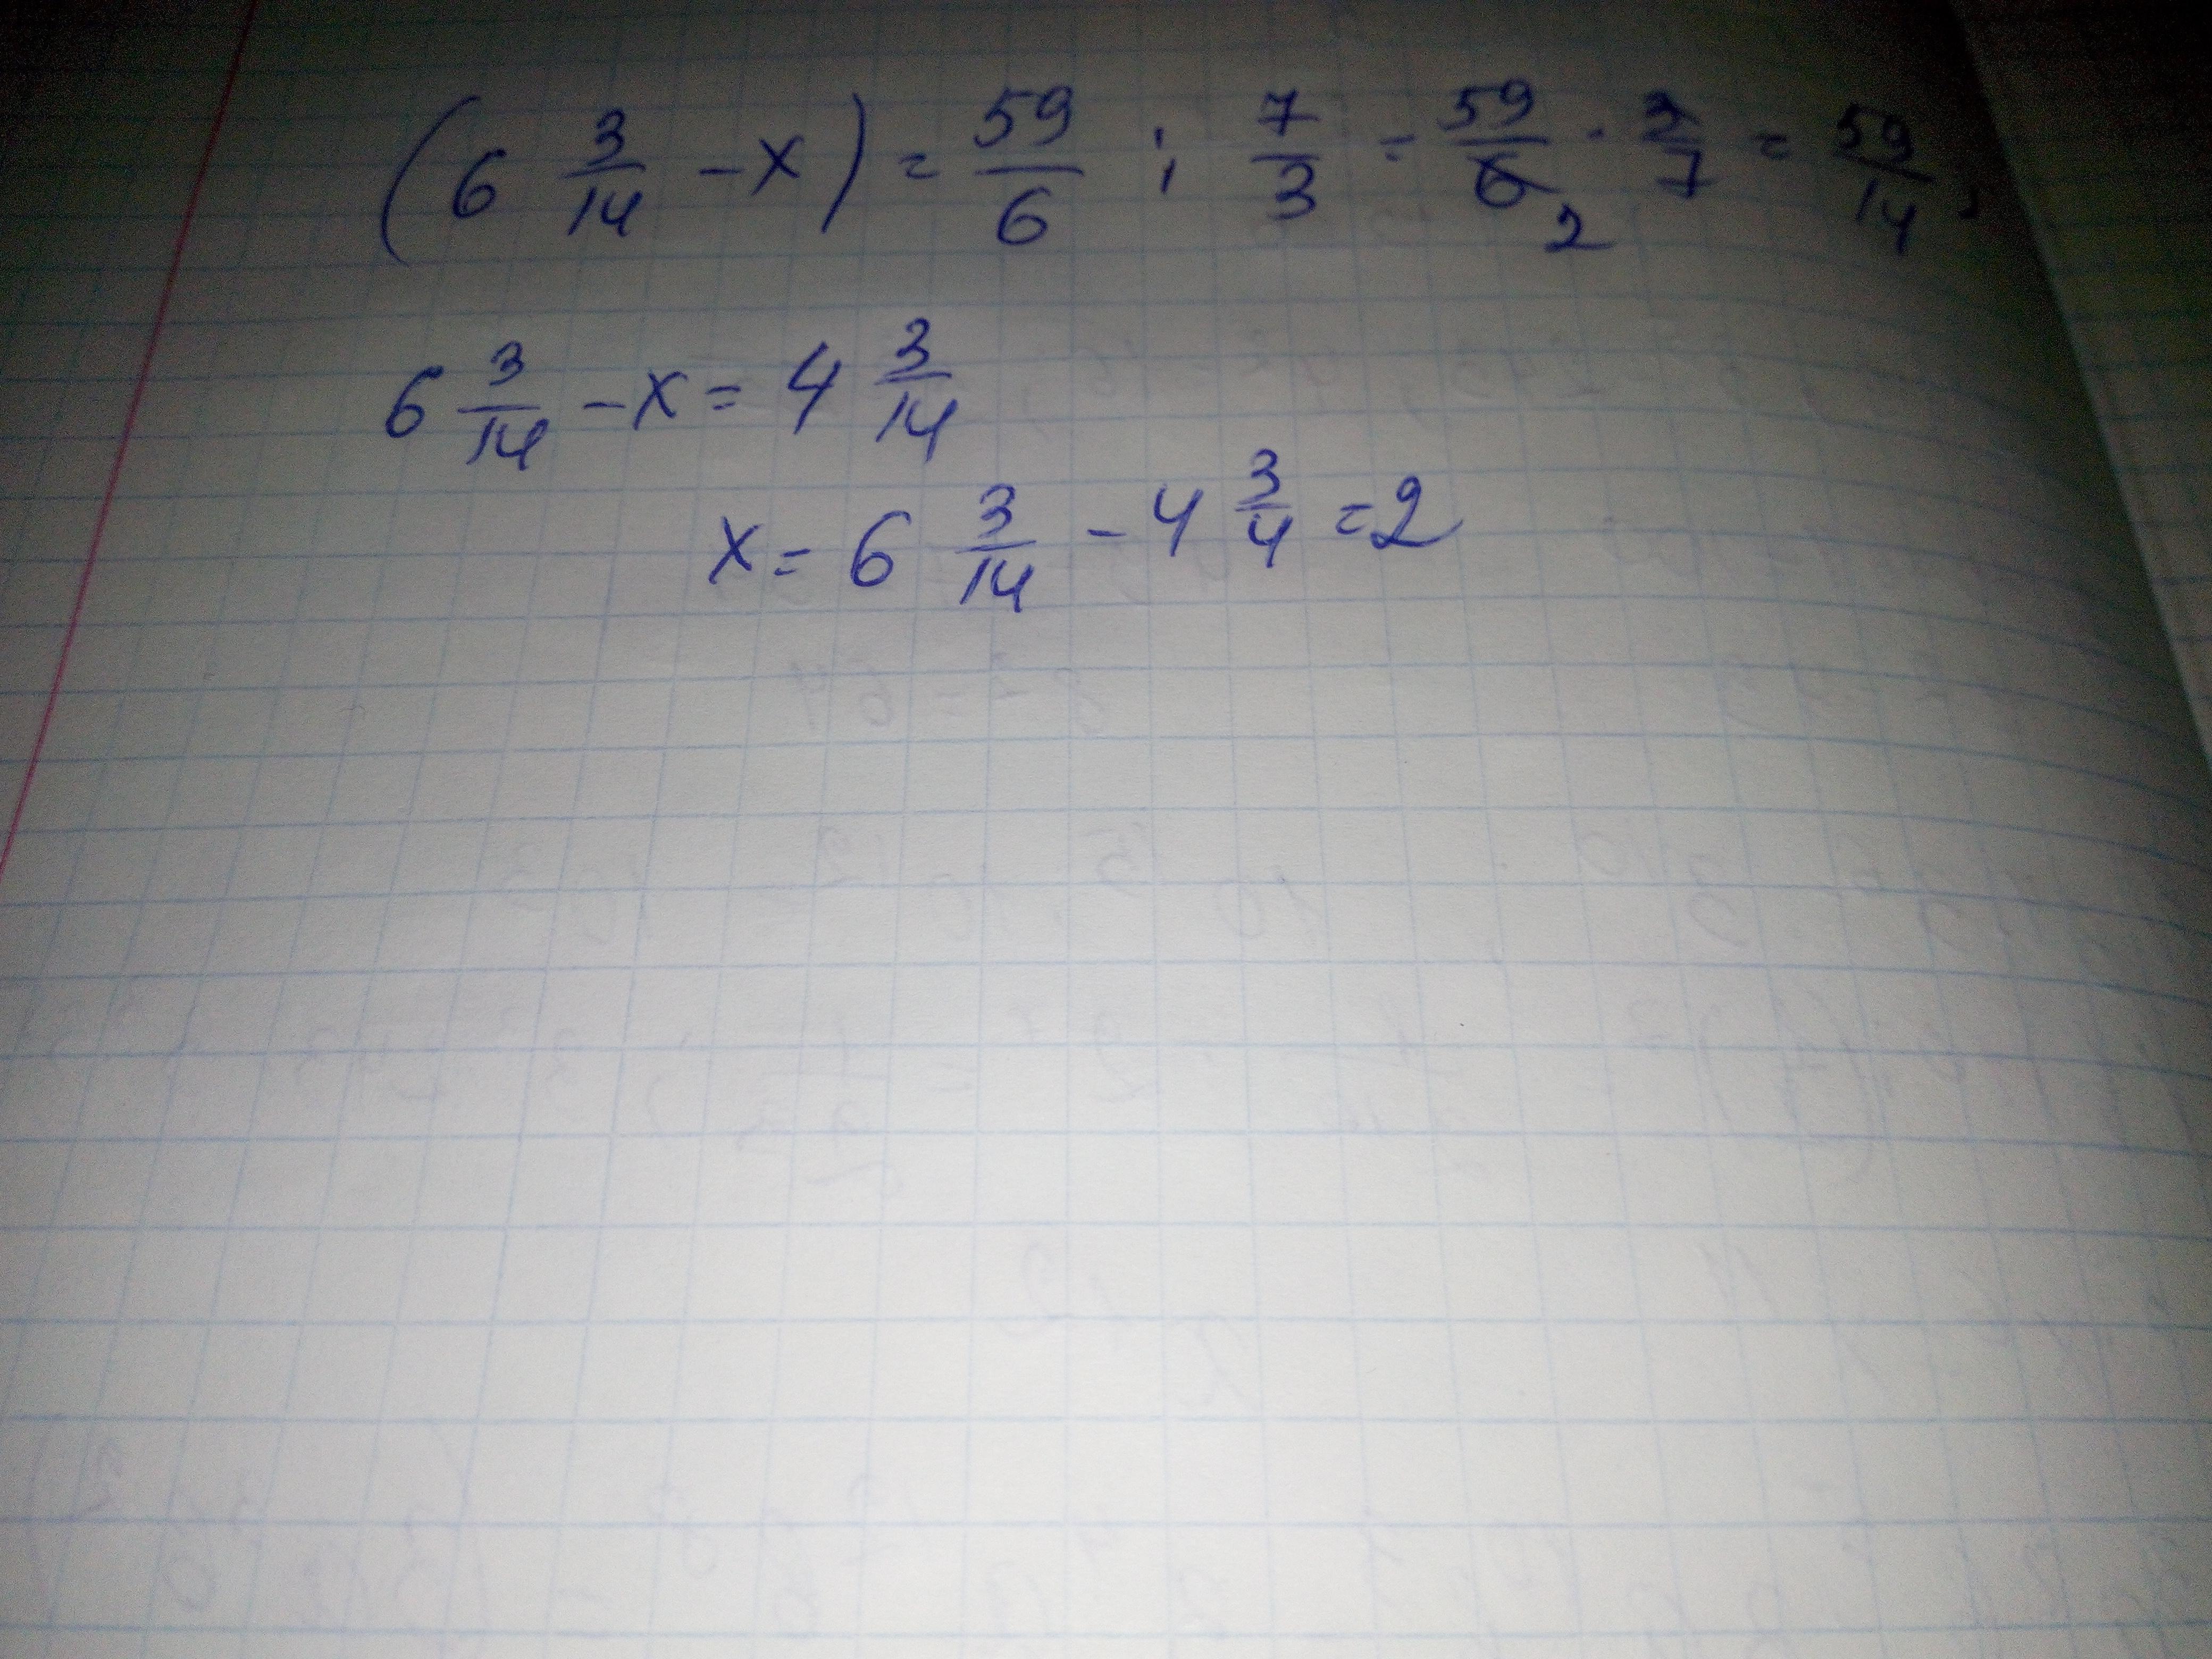 (6 3/14 - x) = 59/6 : 7/3 = 59/6 2 · 3/7 = 59/14;
6 3/14 - x = 4 3/14
x = 6 3/14 - 4 3/4 = 2